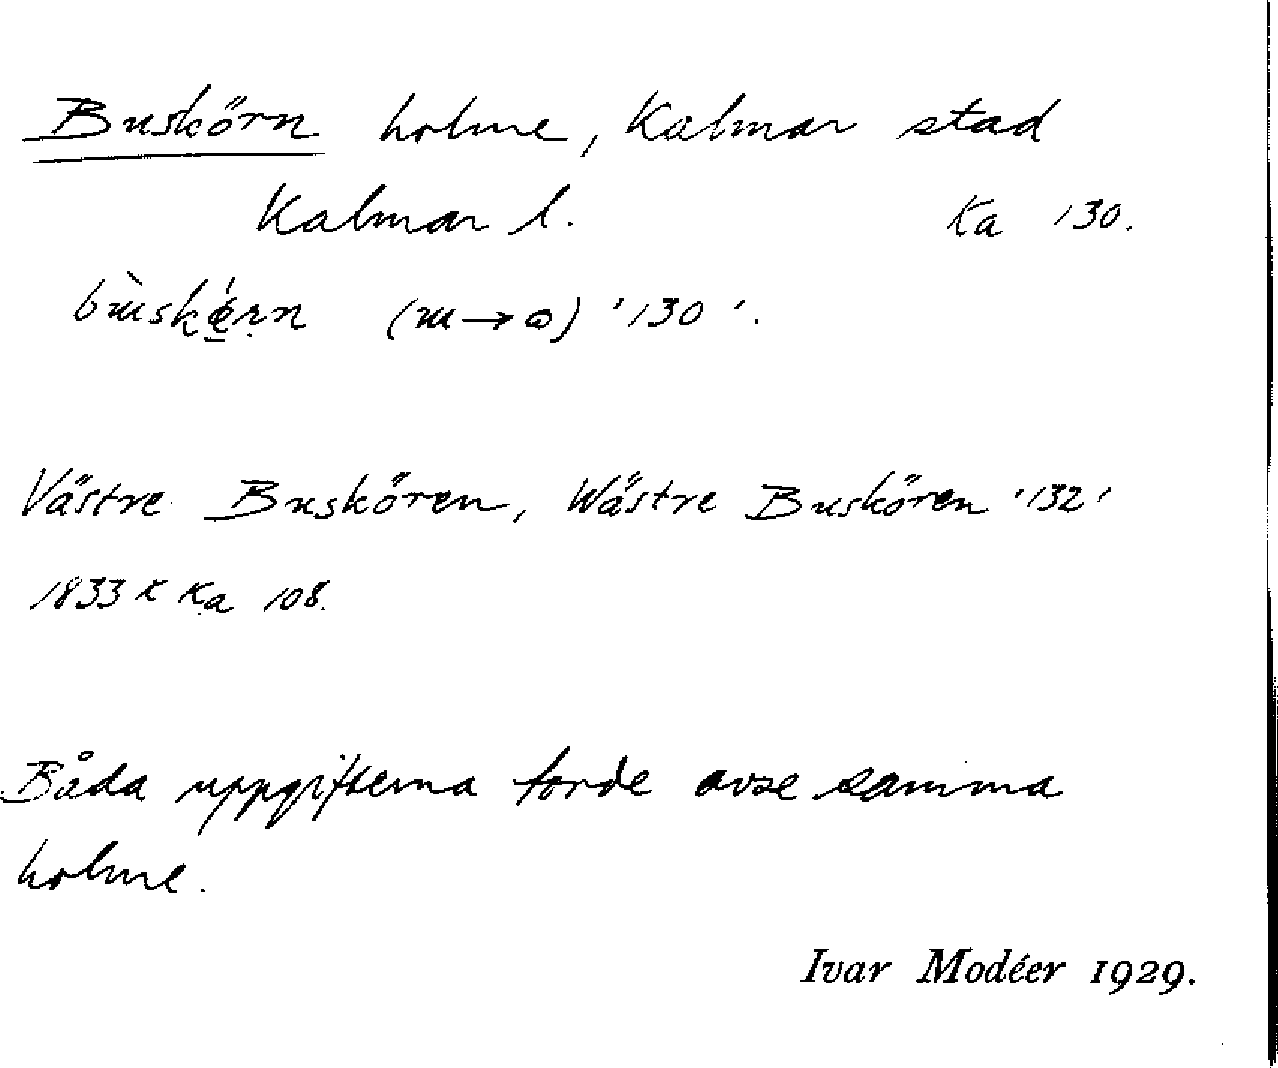 Buskörn holme, Kalmar stad
Kalmar l. Ka 130.
(ɯ→ɷ) '130'.
Västre Buskören, Wästre Buskören '132'
1833 K Ka 108.
Båda uppgifterna torde avse samma
holme.
Ivar Modéer 1929.